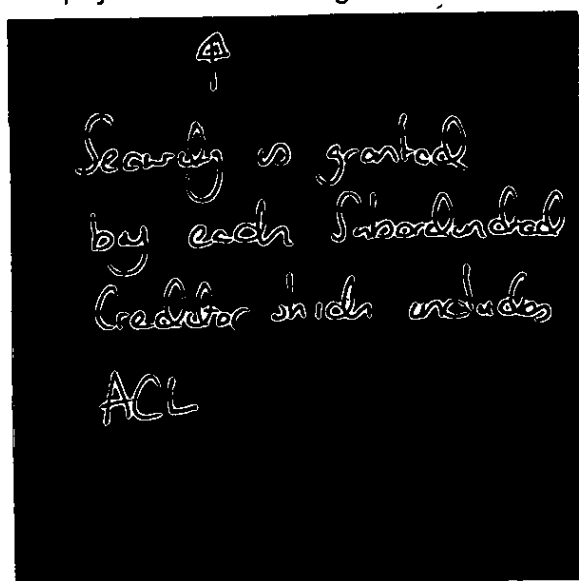 Security is granted
by each Subordinated
Creditor which includes
ACL